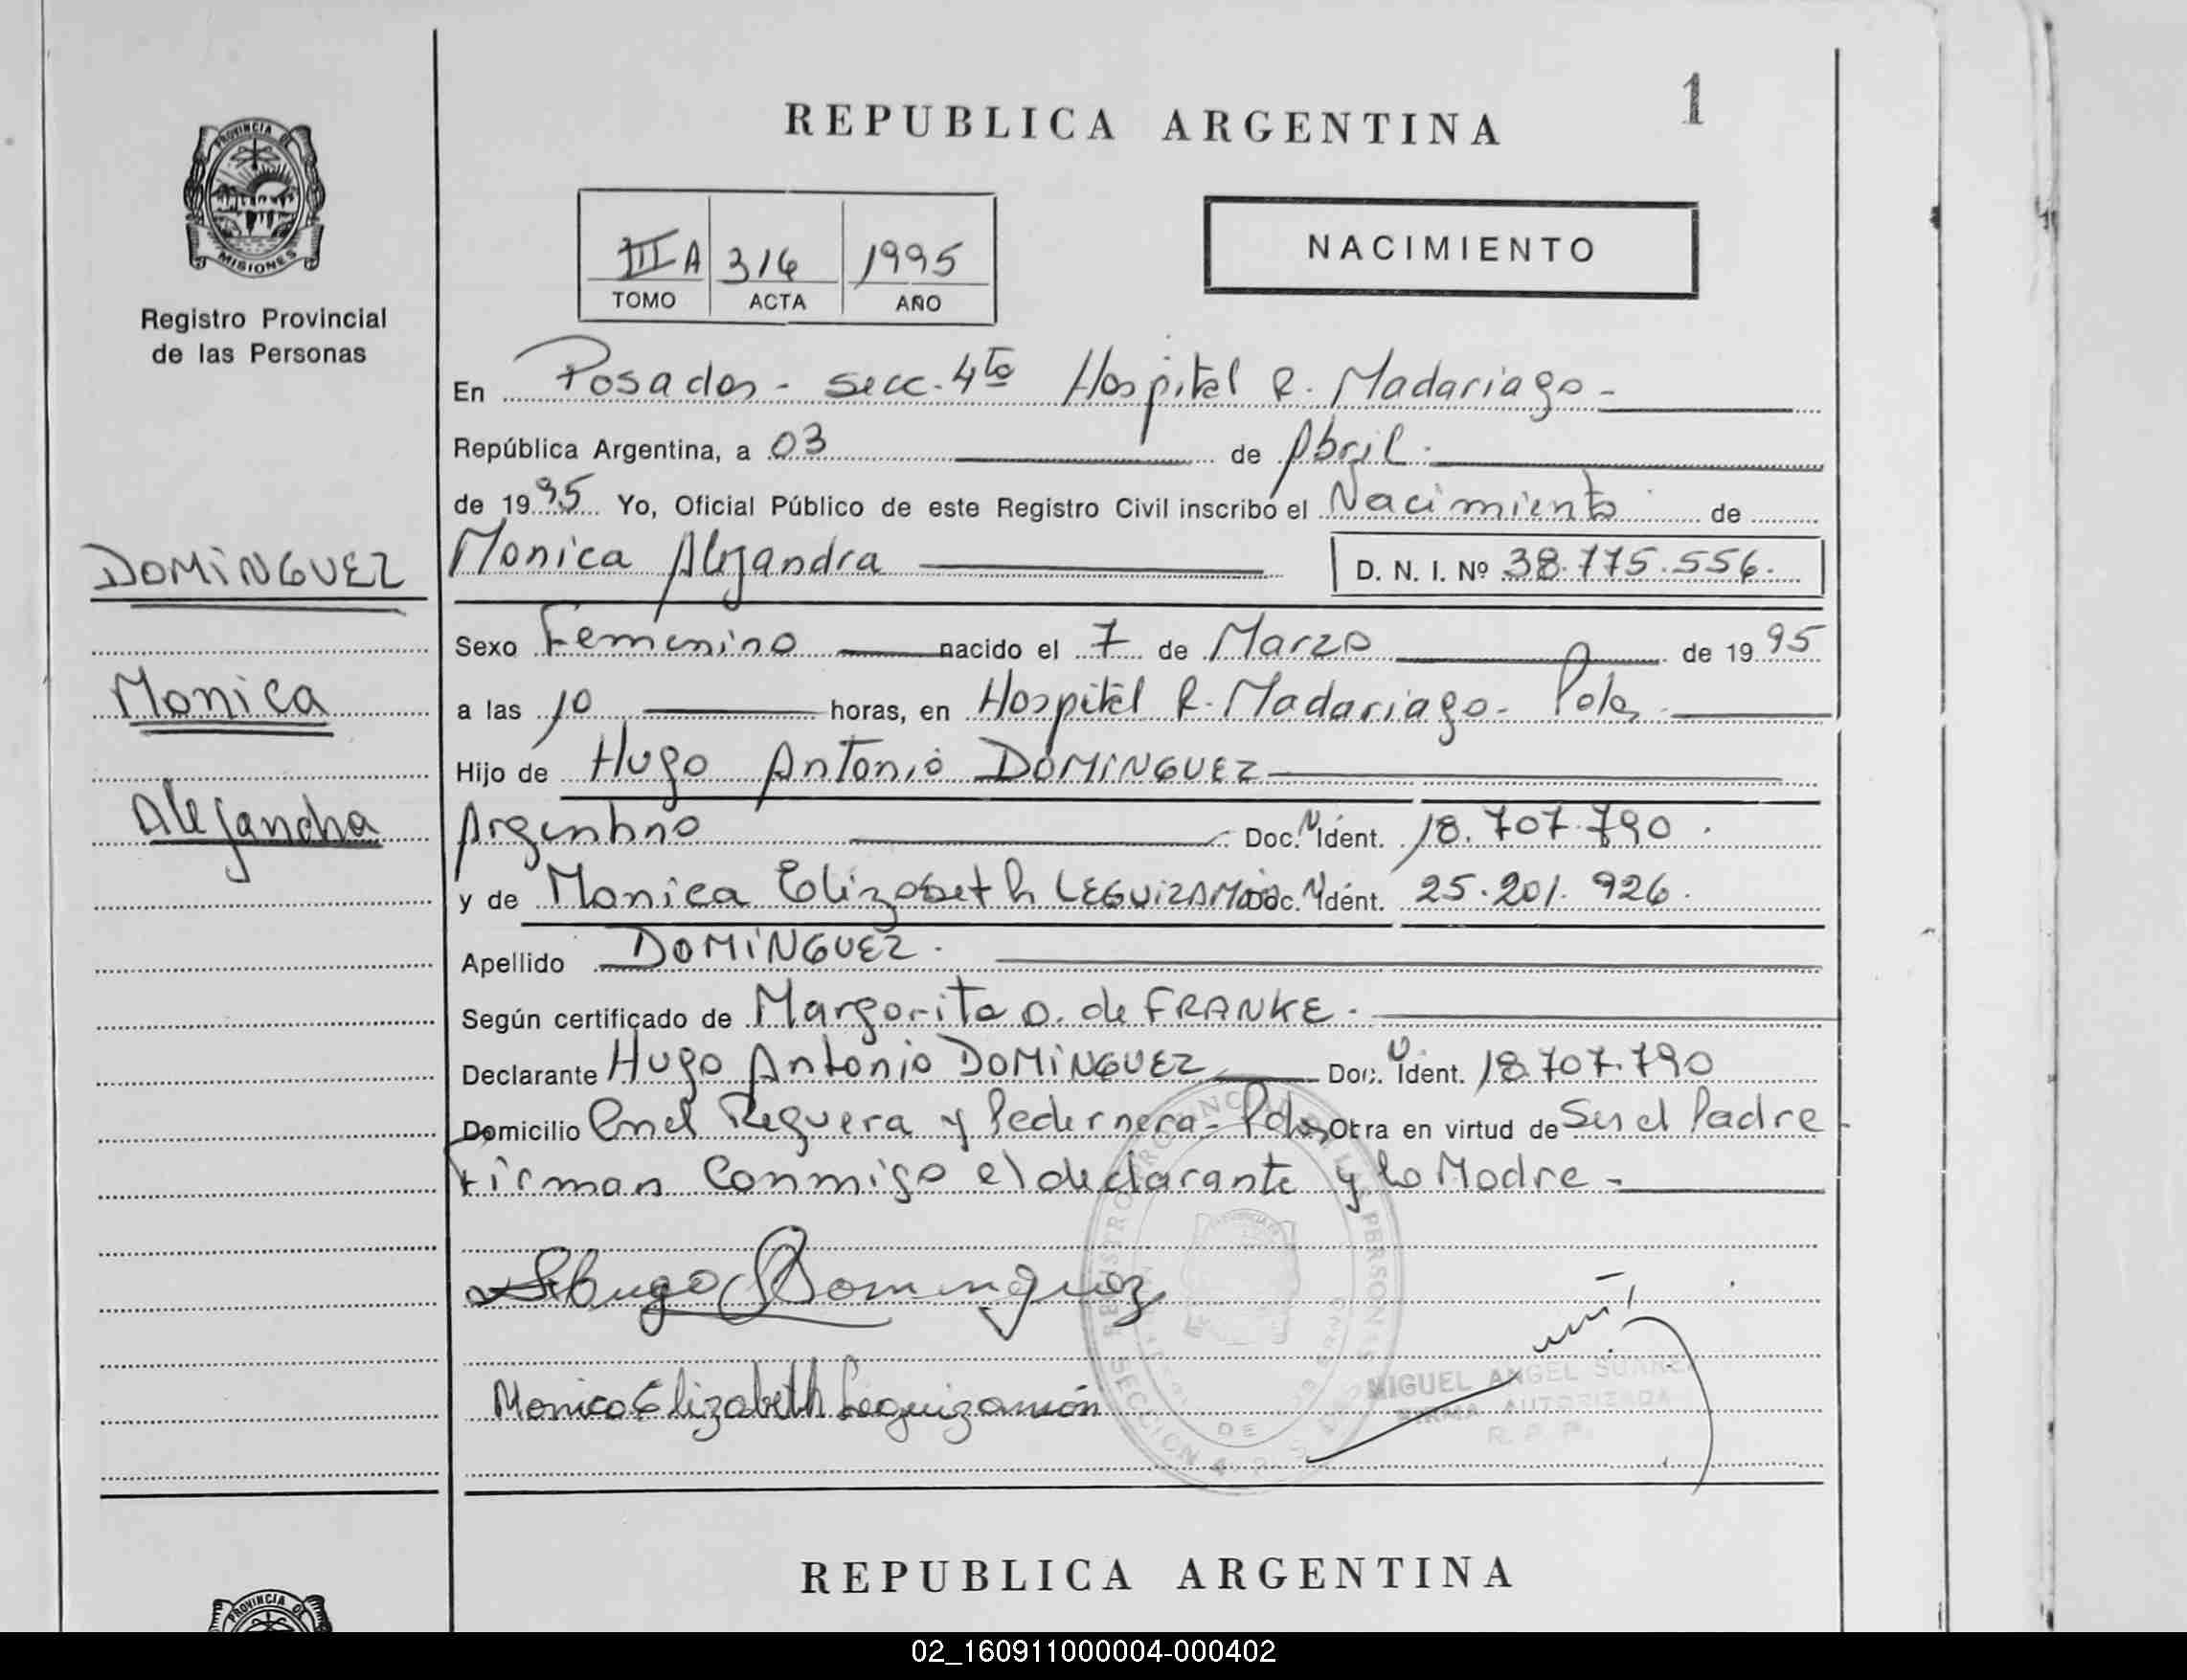 REPUBLICA ARGENTINA
1
PROVINCIA DE
MISIONES
Registro Provincial
de las Personas
III A 316 1995
TOMO ACTA AÑO
NACIMIENTO
En Posadas - secc. 4ta Hospital R. Madariaga -
República Argentina, a 03 de Abril.
de 1995 Yo, Oficial Público de este Registro Civil inscribo el Nacimiento de
DOMINGUEZ
Monica
Alejandra
Monica Alejandra D. N. I. Nº 38.775.556.
Sexo Femenino nacido el 7 de Marzo de 1995
a las 10 horas, en Hospital R. Madariaga - Pdas
Hijo de Hugo Antonio DOMINGUEZ
Argentino Doc. N Ident. 18.707.790.
y de Monica Elizabeth LEGUIZAMON Doc. N Ident. 25.201.926.
Apellido DOMINGUEZ.
Según certificado de Margarita O. de FRANKE.
Declarante Hugo Antonio DOMINGUEZ Doc. N Ident. 18.707.790
Domicilio Cnel Reguera y Pedernera - Pdas Otra en virtud de Ser el Padre
Firman Conmigo el declarante y la Madre -
Hugo Dominguez
Monica Elizabeth Leguizamón
MIGUEL ANGEL SUAREZ
FIRMA AUTORIZADA
R. P. P.
REPUBLICA ARGENTINA
PROVINCIA DE
02_160911000004-000402